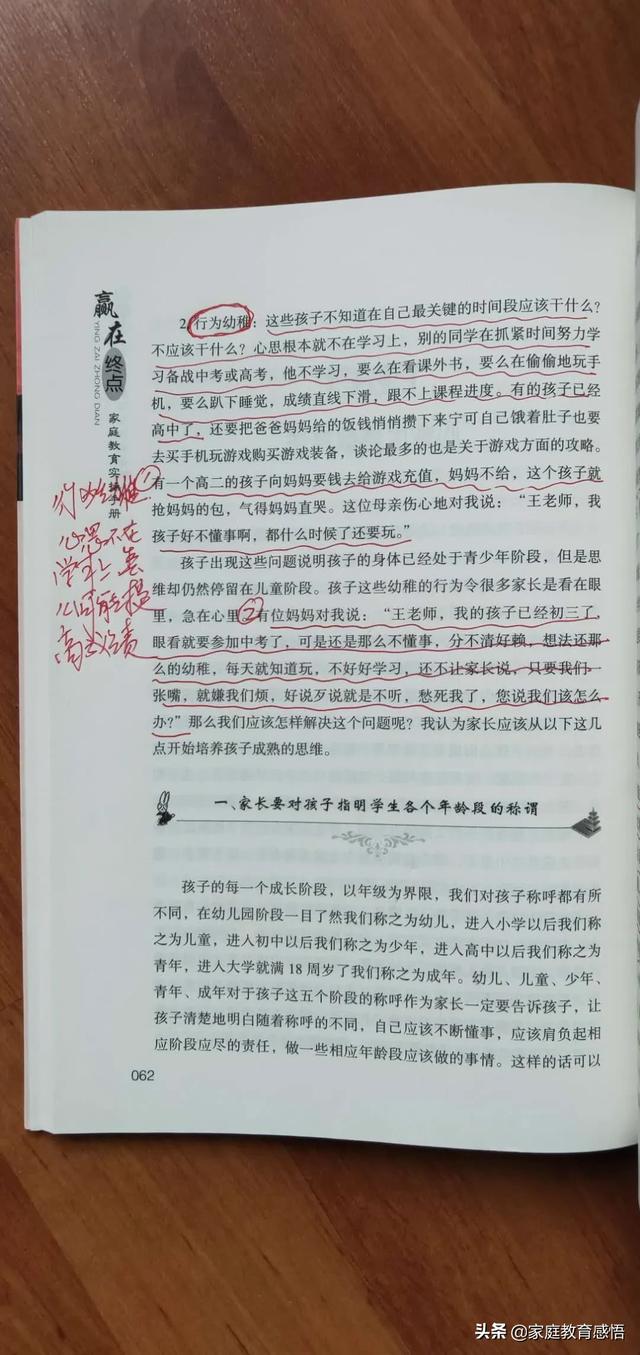 赢在终点
YING ZAI ZHONG DIAN
家庭教育实操手册
2. 行为幼稚：这些孩子不知道在自己最关键的时间段应该干什么？
不应该干什么？心思根本就不在学习上，别的同学在抓紧时间努力学
习备战中考或高考，他不学习，要么在看课外书，要么在偷偷地玩手
机，要么趴下睡觉，成绩直线下滑，跟不上课程进度。有的孩子已经
高中了，还要把爸爸妈妈给的饭钱悄悄攒下来宁可自己饿着肚子也要
去买手机玩游戏购买游戏装备，谈论最多的也是关于游戏方面的攻略。
有一个高二的孩子向妈妈要钱去给游戏充值，妈妈不给，这个孩子就
抢妈妈的包，气得妈妈直哭。这位母亲伤心地对我说：“王老师，我
孩子好不懂事啊，都什么时候了还要玩。”
孩子出现这些问题说明孩子的身体已经处于青少年阶段，但是思
维却仍然停留在儿童阶段。孩子这些幼稚的行为令很多家长是看在眼
里，急在心里②有位妈妈对我说：“王老师，我的孩子已经初三了，
眼看就要参加中考了，可是还是那么不懂事，分不清好赖，想法还那
么的幼稚，每天就知道玩，不好好学习，还不让家长说，只要我们一
张嘴，就嫌我们烦，好说歹说就是不听，愁死我了，您说我们该怎么
办？”那么我们应该怎样解决这个问题呢？我认为家长应该从以下这几
点开始培养孩子成熟的思维。
①
心思不在
学习上
一、家长要对孩子指明学生各个年龄段的称谓
孩子的每一个成长阶段，以年级为界限，我们对孩子称呼都有所
不同，在幼儿园阶段一目了然我们称之为幼儿，进入小学以后我们称
之为儿童，进入初中以后我们称之为少年，进入高中以后我们称之为
青年，进入大学就满 18 周岁了我们称之为成年。幼儿、儿童、少年、
青年、成年对于孩子这五个阶段的称呼作为家长一定要告诉孩子，让
孩子清楚地明白随着称呼的不同，自己应该不断懂事，应该肩负起相
应阶段应尽的责任，做一些相应年龄段应该做的事情。这样的话可以
062
头条 @家庭教育感悟